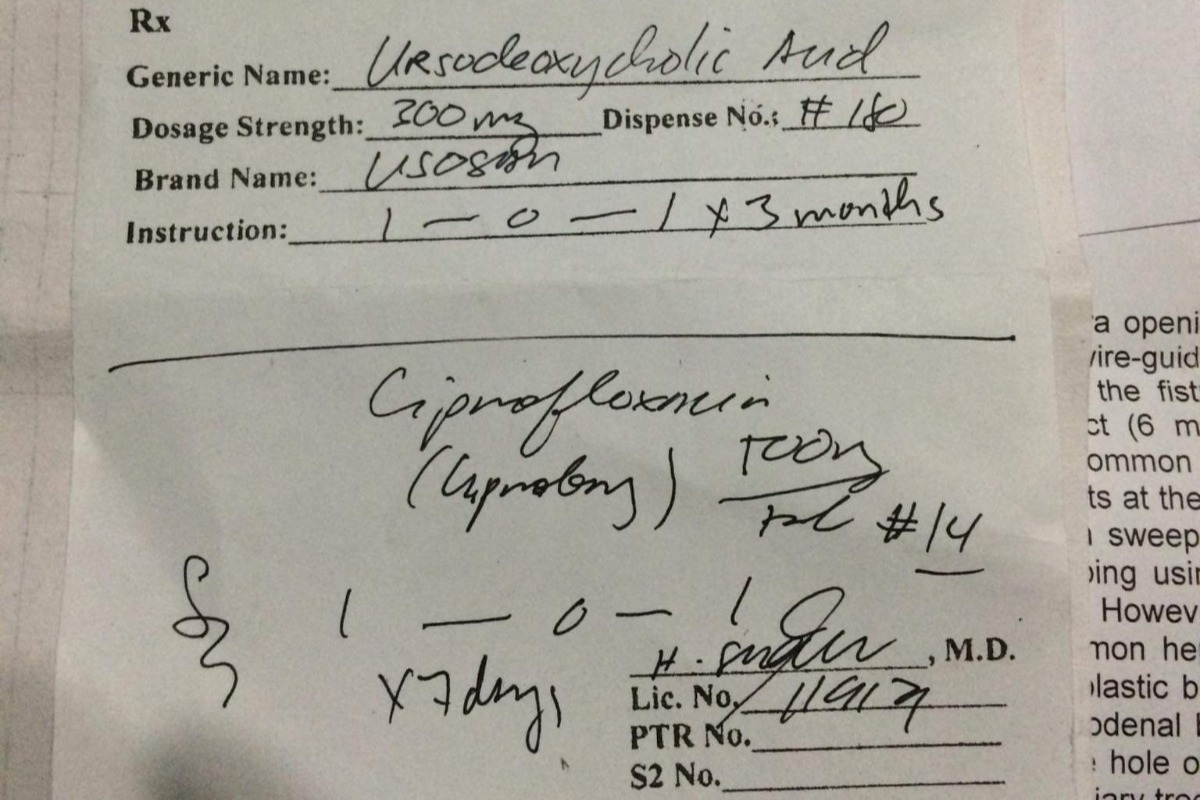 Rx
Generic Name: Ursodeoxycholic Acid
Dosage Strength: 300mg Dispense No.: # 180
Brand Name:
Instruction: 1 — 0 — 1 x 3 months
Ciprofloxacin
500mg
tab #14
1 — 0 — 1
x 7 days
H. , M.D.
Lic. No.
PTR No.
S2 No.
a openi
ire-guid
the fist
ct (6 m
ommon
ts at the
sweep
ing usin
Howev
mon he
plastic b
odenal
hole o
iary tree